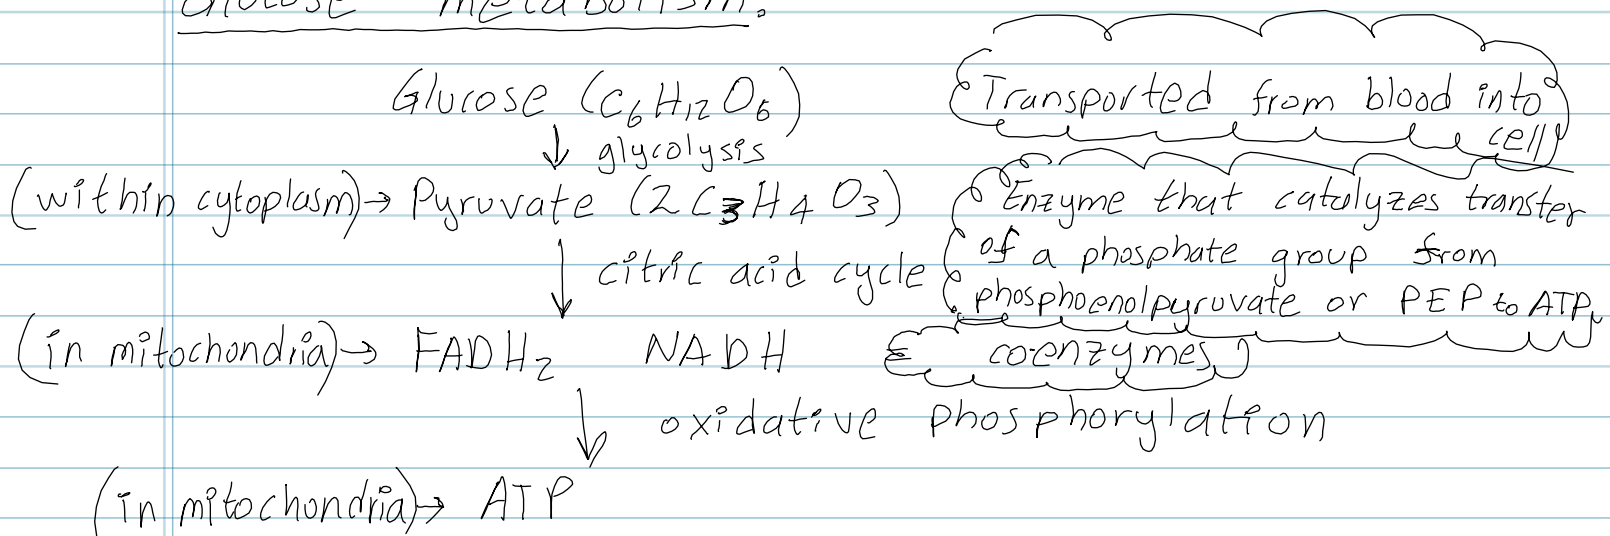 Glucose Metabolism:
Glucose (C6H12O6)
Transported from blood into cell
↓ glycolysis
(within cytoplasm)→ Pyruvate (2 C3H4O3)
Enzyme that catalyzes transfer
of a phosphate group from
phosphoenolpyruvate or PEP to ATP
↓ citric acid cycle
(in mitochondria)→ FADH2 NADH
coenzymes
↓ oxidative phosphorylation
(in mitochondria)→ ATP